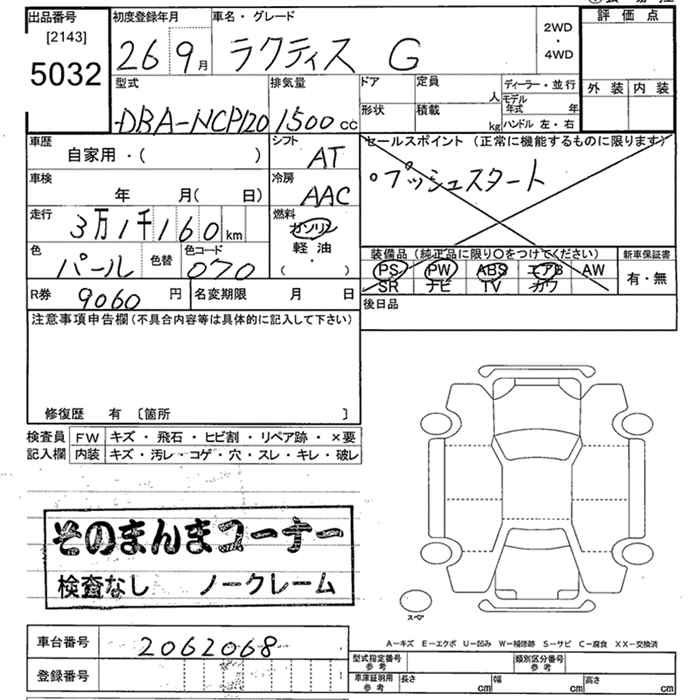 出品番号 初度登録年月 車名・グレード 2WD・4WD 評価点
[2143]
5032 26 9月 ラクティス G
外装 内装
型式 排気量 ドア 定員 人 ディーラー・並行
DBA-NCP120 1500cc 形状 積載 kg モデル年式 年
ハンドル 左・右
車歴 自家用・( ) シフト AT セールスポイント (正常に機能するものに限ります)
車検 年 月( 日) 冷房 AAC ○プッシュスタート
走行 3万1千160km 燃料 ガソリン 軽油 ( ・ )
色 パール 色替 色コード 070
装備品 (純正品に限り○をつけてください) 新車保証書
PS PW ABS エアB AW 有・無
SR ナビ TV カワ
R券 9060円 名変期限 月 日 後日品
注意事項申告欄 (不具合内容等は具体的に記入して下さい)
修復歴 有 [箇所 ]
検査員 FW キズ・飛石・ヒビ割・リペア跡・×要
記入欄 内装 キズ・汚レ・コゲ・穴・スレ・キレ・破レ
そのまんまコーナー
検査なし ノークレーム
スペア
A-キズ E-エクボ U-凹み W-補修跡 S-サビ C-腐食 XX-交換済
車台番号 2062068
型式指定番号 参考 類別区分番号 参考
登録番号 車庫証明用 参考 長さ cm 幅 cm 高さ cm